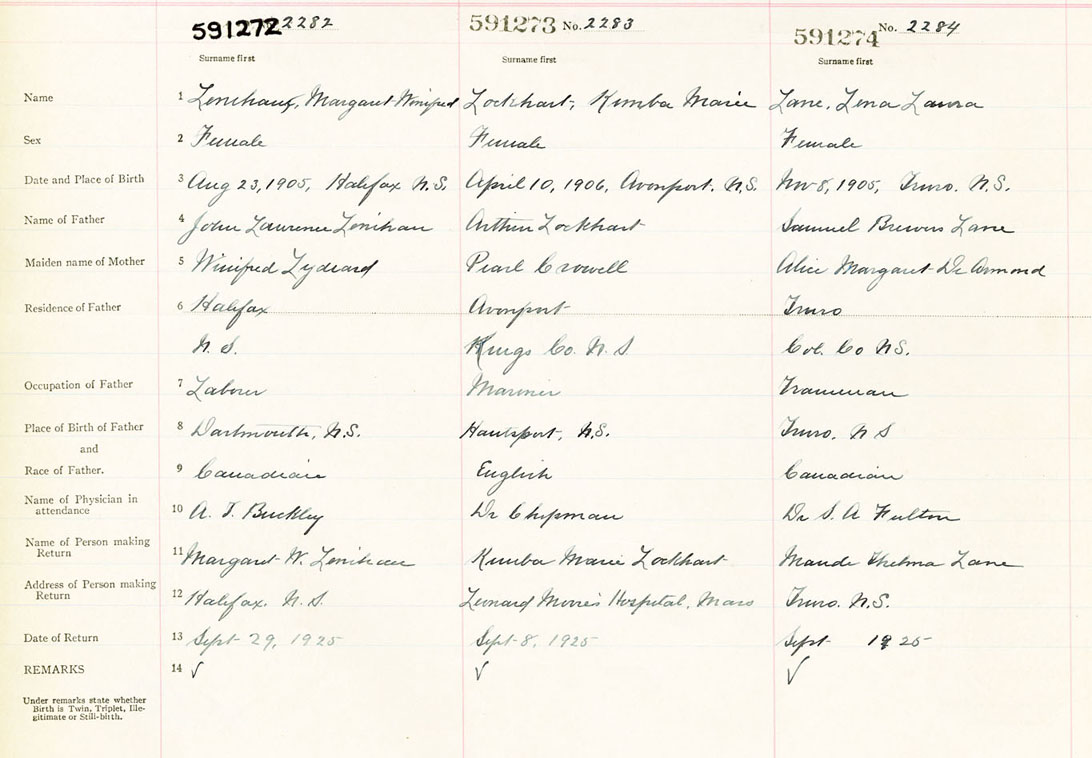 591272 No. 2282 591273 No. 2283 591274 No. 2284
Surname first Surname first Surname first
Name 1 Lenihan, Margaret Winifred Lockhart, Kimba Marie Lane, Lena Laura
Sex 2 Female Female Female
Date and Place of Birth 3 Aug 23, 1905, Halifax N.S. April 10, 1906, Avonport. N.S. Nov 8, 1905, Truro. N.S.
Name of Father 4 John Lawrence Lenihan Arthur Lockhart Samuel Brewers Lane
Maiden name of Mother 5 Winifred Lydiard Pearl Crowell Alice Margaret De Armond
Residence of Father 6 Halifax Avonport Truro
N.S. Kings Co. N.S Col. Co NS.
Occupation of Father 7 Laborer Mariner Trainman
Place of Birth of Father 8 Dartmouth, N.S. Hantsport, N.S. Truro. N S
and
Race of Father. 9 Canadian English Canadian
Name of Physician in
attendance 10 A. I. Buckley Dr Chipman Dr S. A Fulton
Name of Person making
Return 11 Margaret W. Lenihan Kimba Marie Lockhart Maude Thelma Lane
Address of Person making
Return 12 Halifax. N.S. Leonard Morse's Hospital, Mass Truro. N.S.
Date of Return 13 Sept 29, 1925 Sept 8, 1925 Sept 1925
REMARKS 14 ✓ ✓ ✓
Under remarks state whether
Birth is Twin, Triplet, Ille-
gitimate or Still-birth.